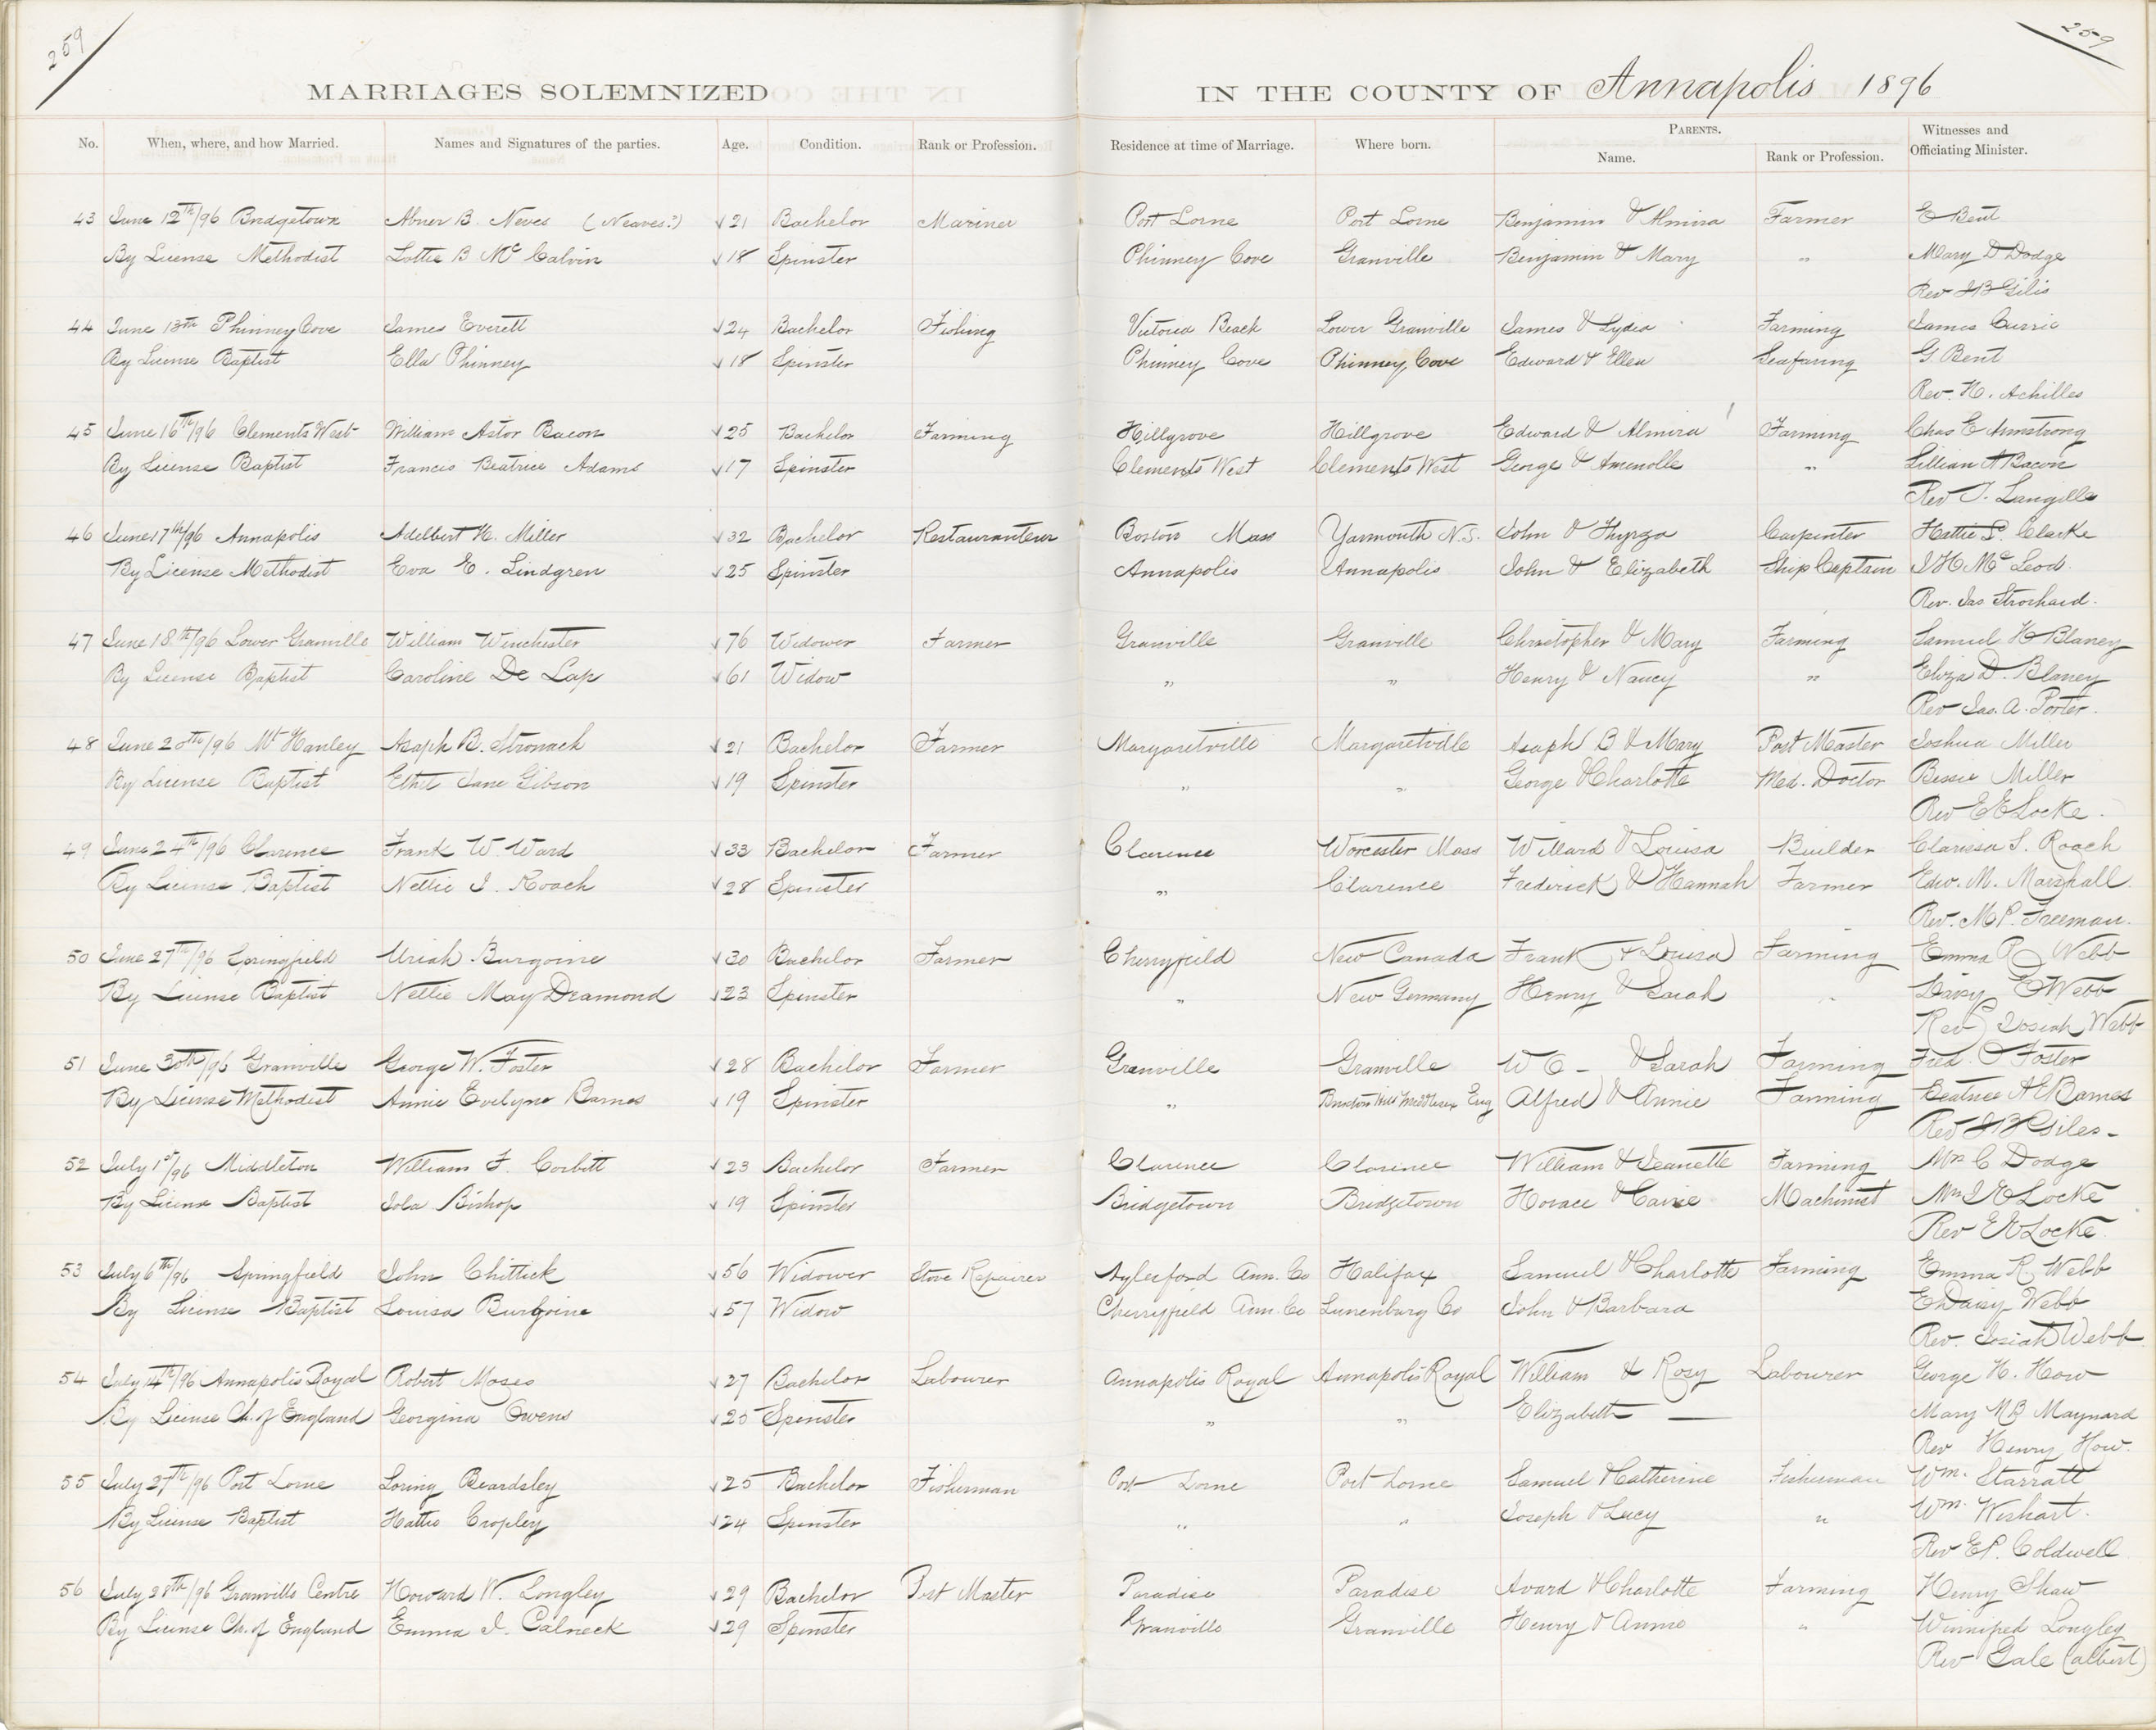 259
259
MARRIAGES SOLEMNIZED IN THE COUNTY OF Annapolis 1896
No. When, where, and how Married. Names and Signatures of the parties. Age. Condition. Rank or Profession. Residence at time of Marriage. Where born. PARENTS. Name. Rank or Profession. Witnesses and Officiating Minister.
43 June 12th/96 Bridgetown Abner B. Neves (Neaves?) √21 Bachelor Mariner Port Lorne Port Lorne Benjamin & Almira Farmer E Bent
By License Methodist Lottie B McCalvin √18 Spinster Phinney Cove Granville Benjamin & Mary " Mary D Dodge
Rev J B Gilis
44 June 13th Phinney Cove James Everett √24 Bachelor Fishing Victoria Beach Lower Granville James & Lydia Farming James Currie
By License Baptist Ella Phinney √18 Spinster Phinney Cove Phinney Cove Edward & Ellen Seafaring G Bent
Rev. H. Achilles
45 June 16th/96 Clements West William Astor Bacon √25 Bachelor Farming Hillgrove Hillgrove Edward & Almira Farming Chas E Armstrong
By License Baptist Francis Beatrice Adams √17 Spinster Clements West Clements West George & " Lillian A Bacon
Rev J. Langille
46 June 17th/96 Annapolis Adelbert H. Miller √32 Bachelor Restauranteur Boston Mass Yarmouth N.S. John & Thyrza Carpenter Hattie S. Clarke
By License Methodist Eva E. Lindgren √25 Spinster Annapolis Annapolis John & Elizabeth Ship Captain J H McLeod.
Rev. Jas Strothard.
47 June 18th/96 Lower Granville William Winchester √76 Widower Farmer Granville Granville Christopher & Mary Farming Samuel H Blaney
By License Baptist Caroline De Lap √61 Widow " " Henry & Nancy " Eliza D. Blaney
Rev Jas. A. Porter.
48 June 20th/96 Mt Hanley Asaph B. Stronach √21 Bachelor Farmer Margaretville Margaretville Asaph B & Mary Post Master Joshua Miller
By License Baptist Ethel Jane Gibson √19 Spinster " " George & Charlotte Med. Doctor Bessie Miller
Rev E E Locke.
49 June 24th/96 Clarence Frank W. Ward √33 Bachelor Farmer Clarence Worcester Mass Willard & Louisa Builder Clarissa S. Roach
By License Baptist Nellie I. Roach √28 Spinster " Clarence Frederick & Hannah Farmer Edw. M. Marshall.
Rev. M P. Freeman.
50 June 27th/96 Springfield Uriah Burgoine √30 Bachelor Farmer Cherryfield New Canada Frank & Louisa Farming Emma R Webb
By License Baptist Nellie May Dramond √23 Spinster " New Germany Henry & Sarah " Daisy E Webb
Rev Josiah Webb
51 June 30th/96 Granville George W. Foster √28 Bachelor Farmer Granville Granville W C - & Sarah Farming Fred. C Foster
By License Methodist Annie Evelyne Barnes √19 Spinster " Hill Middlesex Eng Alfred & Annie Farming Beatrice A E Barnes
Rev J B Giles -
52 July 1st/96 Middleton William F. Corbitt √23 Bachelor Farmer Clarence Clarence William & Jeanette Farming Mrs C Dodge
By License Baptist Iola Bishop √19 Spinster Bridgetown Bridgetown Horace & Machinist Mrs E Locke
Rev E E Locke.
53 July 6th/96 Springfield John Chittick √56 Widower Stove Repairer Aylesford Ann. Co Halifax Samuel & Charlotte Farming Emma R. Webb
By License Baptist Louisa Burgoine √57 Widow Cherryfield Ann. Co Lunenburg Co John & Barbara E Daisy Webb
Rev. Josiah Webb
54 July 14th/96 Annapolis Royal Robert Moses √27 Bachelor Labourer Annapolis Royal Annapolis Royal William & Rosy Labourer George H. How
By License Ch. of England Georgina Owens √25 Spinster " " Elizabeth — Mary M B Maynard
Rev Henry How.
55 July 27th/96 Port Lorne Loring Beardsley √25 Bachelor Fisherman Port Lorne Port Lorne Samuel & Catherine Fisherman Wm. Starratt
By License Baptist Hattie Cropley √24 Spinster " " Joseph & Lucy " Wm. Wishart.
Rev E P. Coldwell
56 July 28th/96 Granville Centre Howard W. Longley √29 Bachelor Post Master Paradise Paradise Avard & Charlotte Farming Henry Shaw
By License Ch. of England Emma I. Calneck √29 Spinster Granville Granville Henry & Annie " Winnifred Longley
Rev Gale (albert)